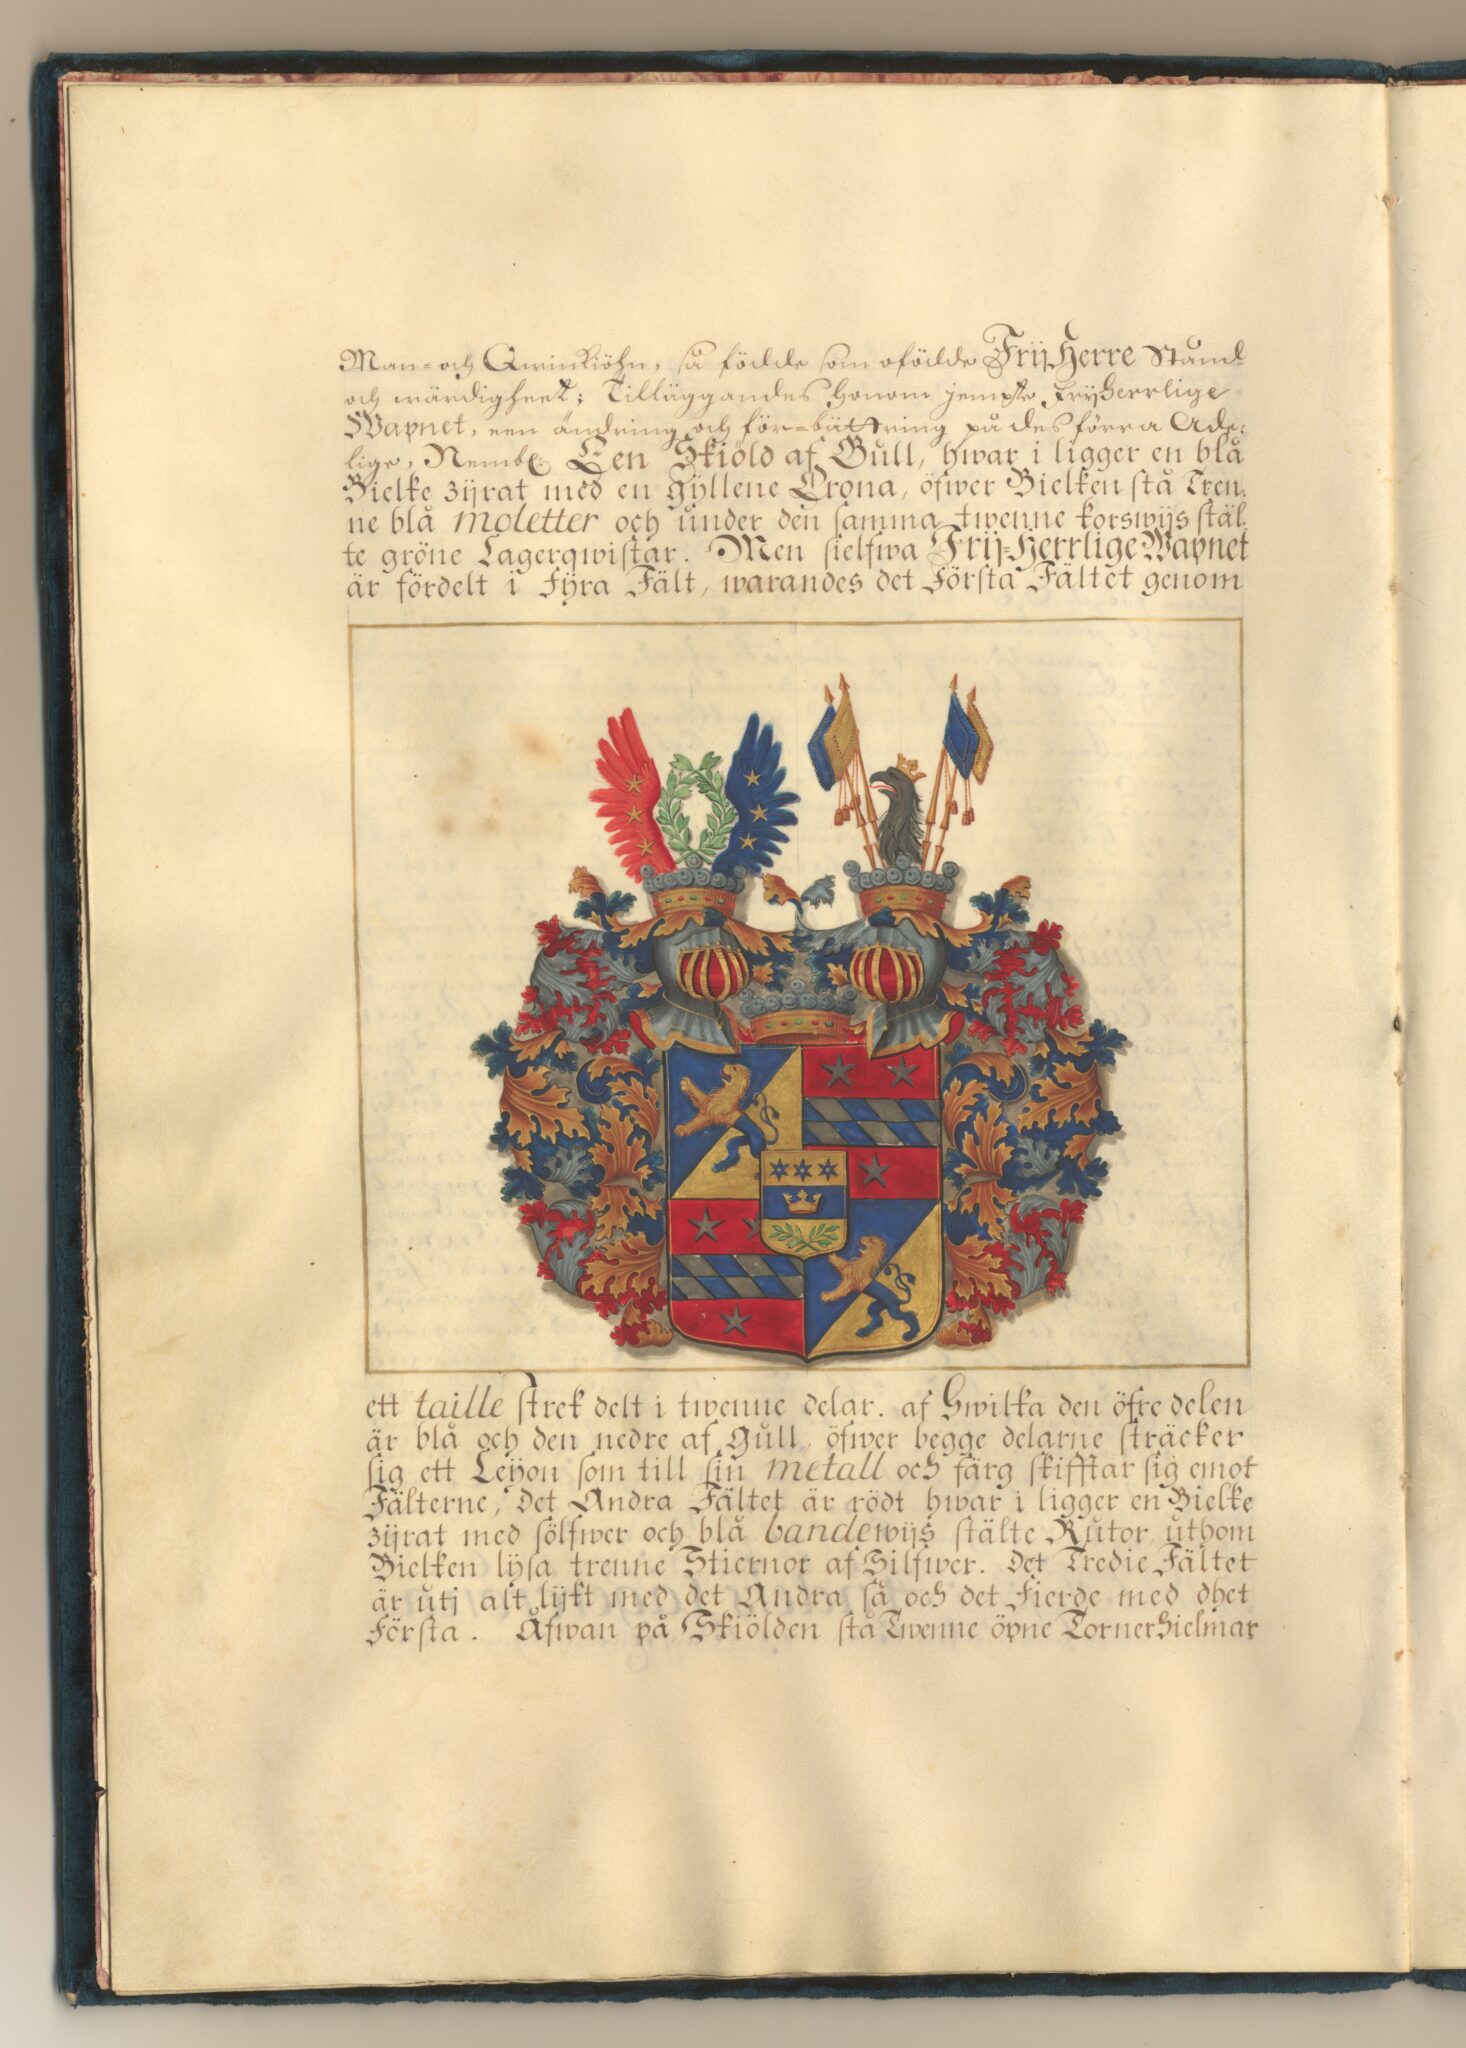 Man- och Qwinkiöhn, så födde som ofödde Frij Herre Stånd
och wärdigheet; Tilläggandes honom jempte Fryherrlige
Wapnet, een ändring och för-bättring på des förra Ade-
lige, Nembl. Een Skiöld af Gull, hwar i ligger en blå
Bielke zijrat med en gyllene Crona, öfwer Bielken stå Tren-
ne blå moletter och under den samma twenne korswijs stäl
te gröne Lagerqwistar. Men sielfwa Frij-Herrlige Wapnet
är fördelt i Fyra Fält, warandes det Första Fältet genom
ett taille strek delt i twenne delar. af Hwilka den öfre delen
är blå och den nedre af Gull, öfwer begge delarne sträcker
sig ett Leyon som till sin metall och färg skifftar sig emot
Fälterne, Det Andra Fältet är rödt hwar i ligger en Bielke
zijrat med sölfwer och blå bandewijs stälte Rutor, uthom
Bielken lysa trenne Stiernor af Silfwer. Det Tredie Fältet
är utj alt lijkt med det Andra så och det Fierde med dhet
Första. Åfwan på Skiölden stå Twenne öpne Tornerhielmar